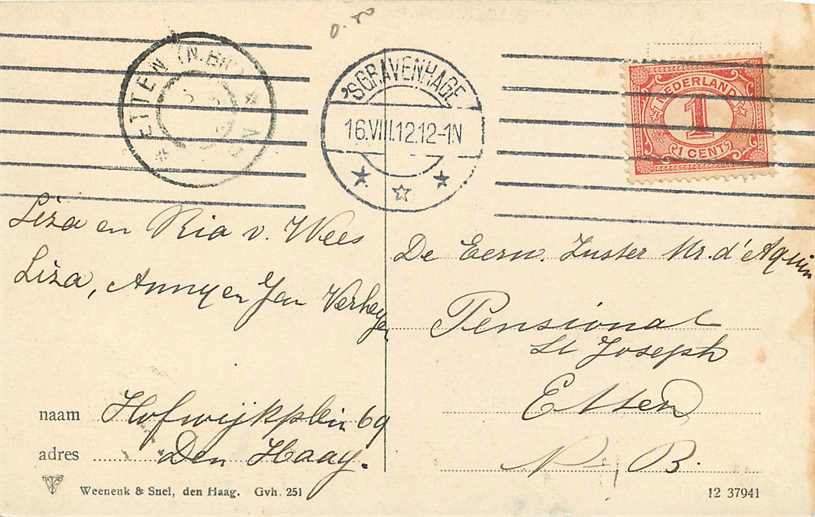 0.80
ETTEN (N.BR)
'SGRAVENHAGE
16.VIII.12.12-1N
NEDERLAND
1
1 CENT
Liza en Ria v. Wees
Liza, Anny en Jan Verheyen
De Eerw. Zuster Mr. d'Aquin
Pensionat
St Joseph
Etten
N. B.
naam Hofwijkplein 69
adres Den Haag.
Weenenk & Snel, den Haag. Gvh. 251
12 37941